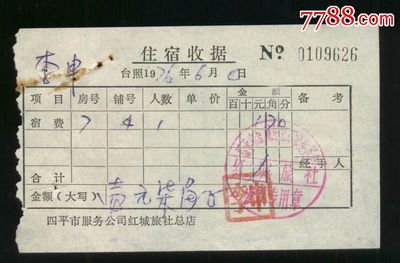 7788.com
李申
住宿收据 № 0109626
台照1976年6月 日
项目 房号 铺号 人数 单价 金额 备考
百十元角分
宿费 7 4 1 1 70
合计 经手人
金额(大写) 壹元柒角
旅社
专用章
四平市服务公司红城旅社总店